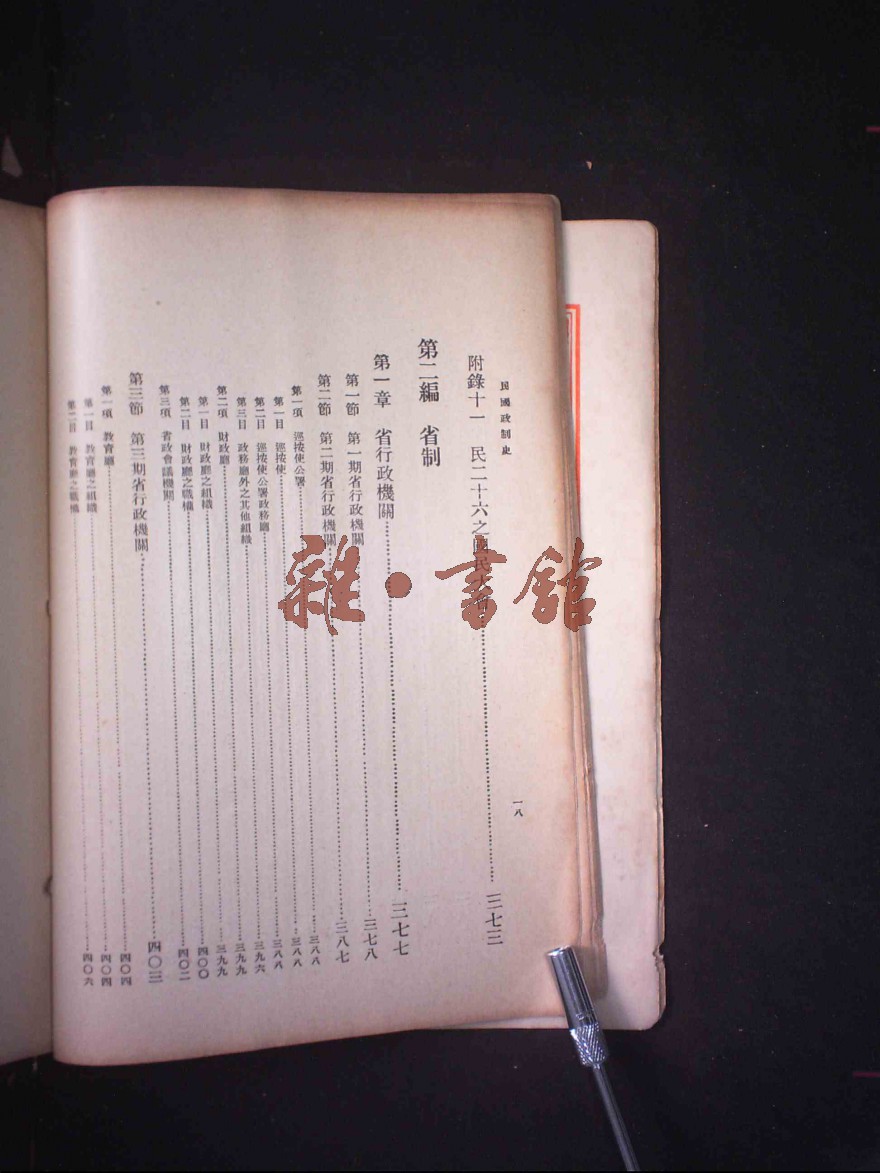 民國政制史
一八
附錄十一　民二十六之國民大會……三七三
第二編　省制
第一章　省行政機關……三七七
第一節　第一期省行政機關……三七八
第二節　第二期省行政機關……三八七
第一項　巡按使公署……三八八
第一目　巡按使……三八八
第二目　巡按使公署政務廳……三八八
第三目　政務廳外之其他組織……三九六
第二項　財政廳……三九九
第一目　財政廳之組織……三九九
第二目　財政廳之職權……四〇〇
第三項　省政會議機關……四〇二
第三節　第三期省行政機關……四〇三
第一項　教育廳……四〇四
第一目　教育廳之組織……四〇四
第二目　教育廳之職權……四〇六
雜·書館